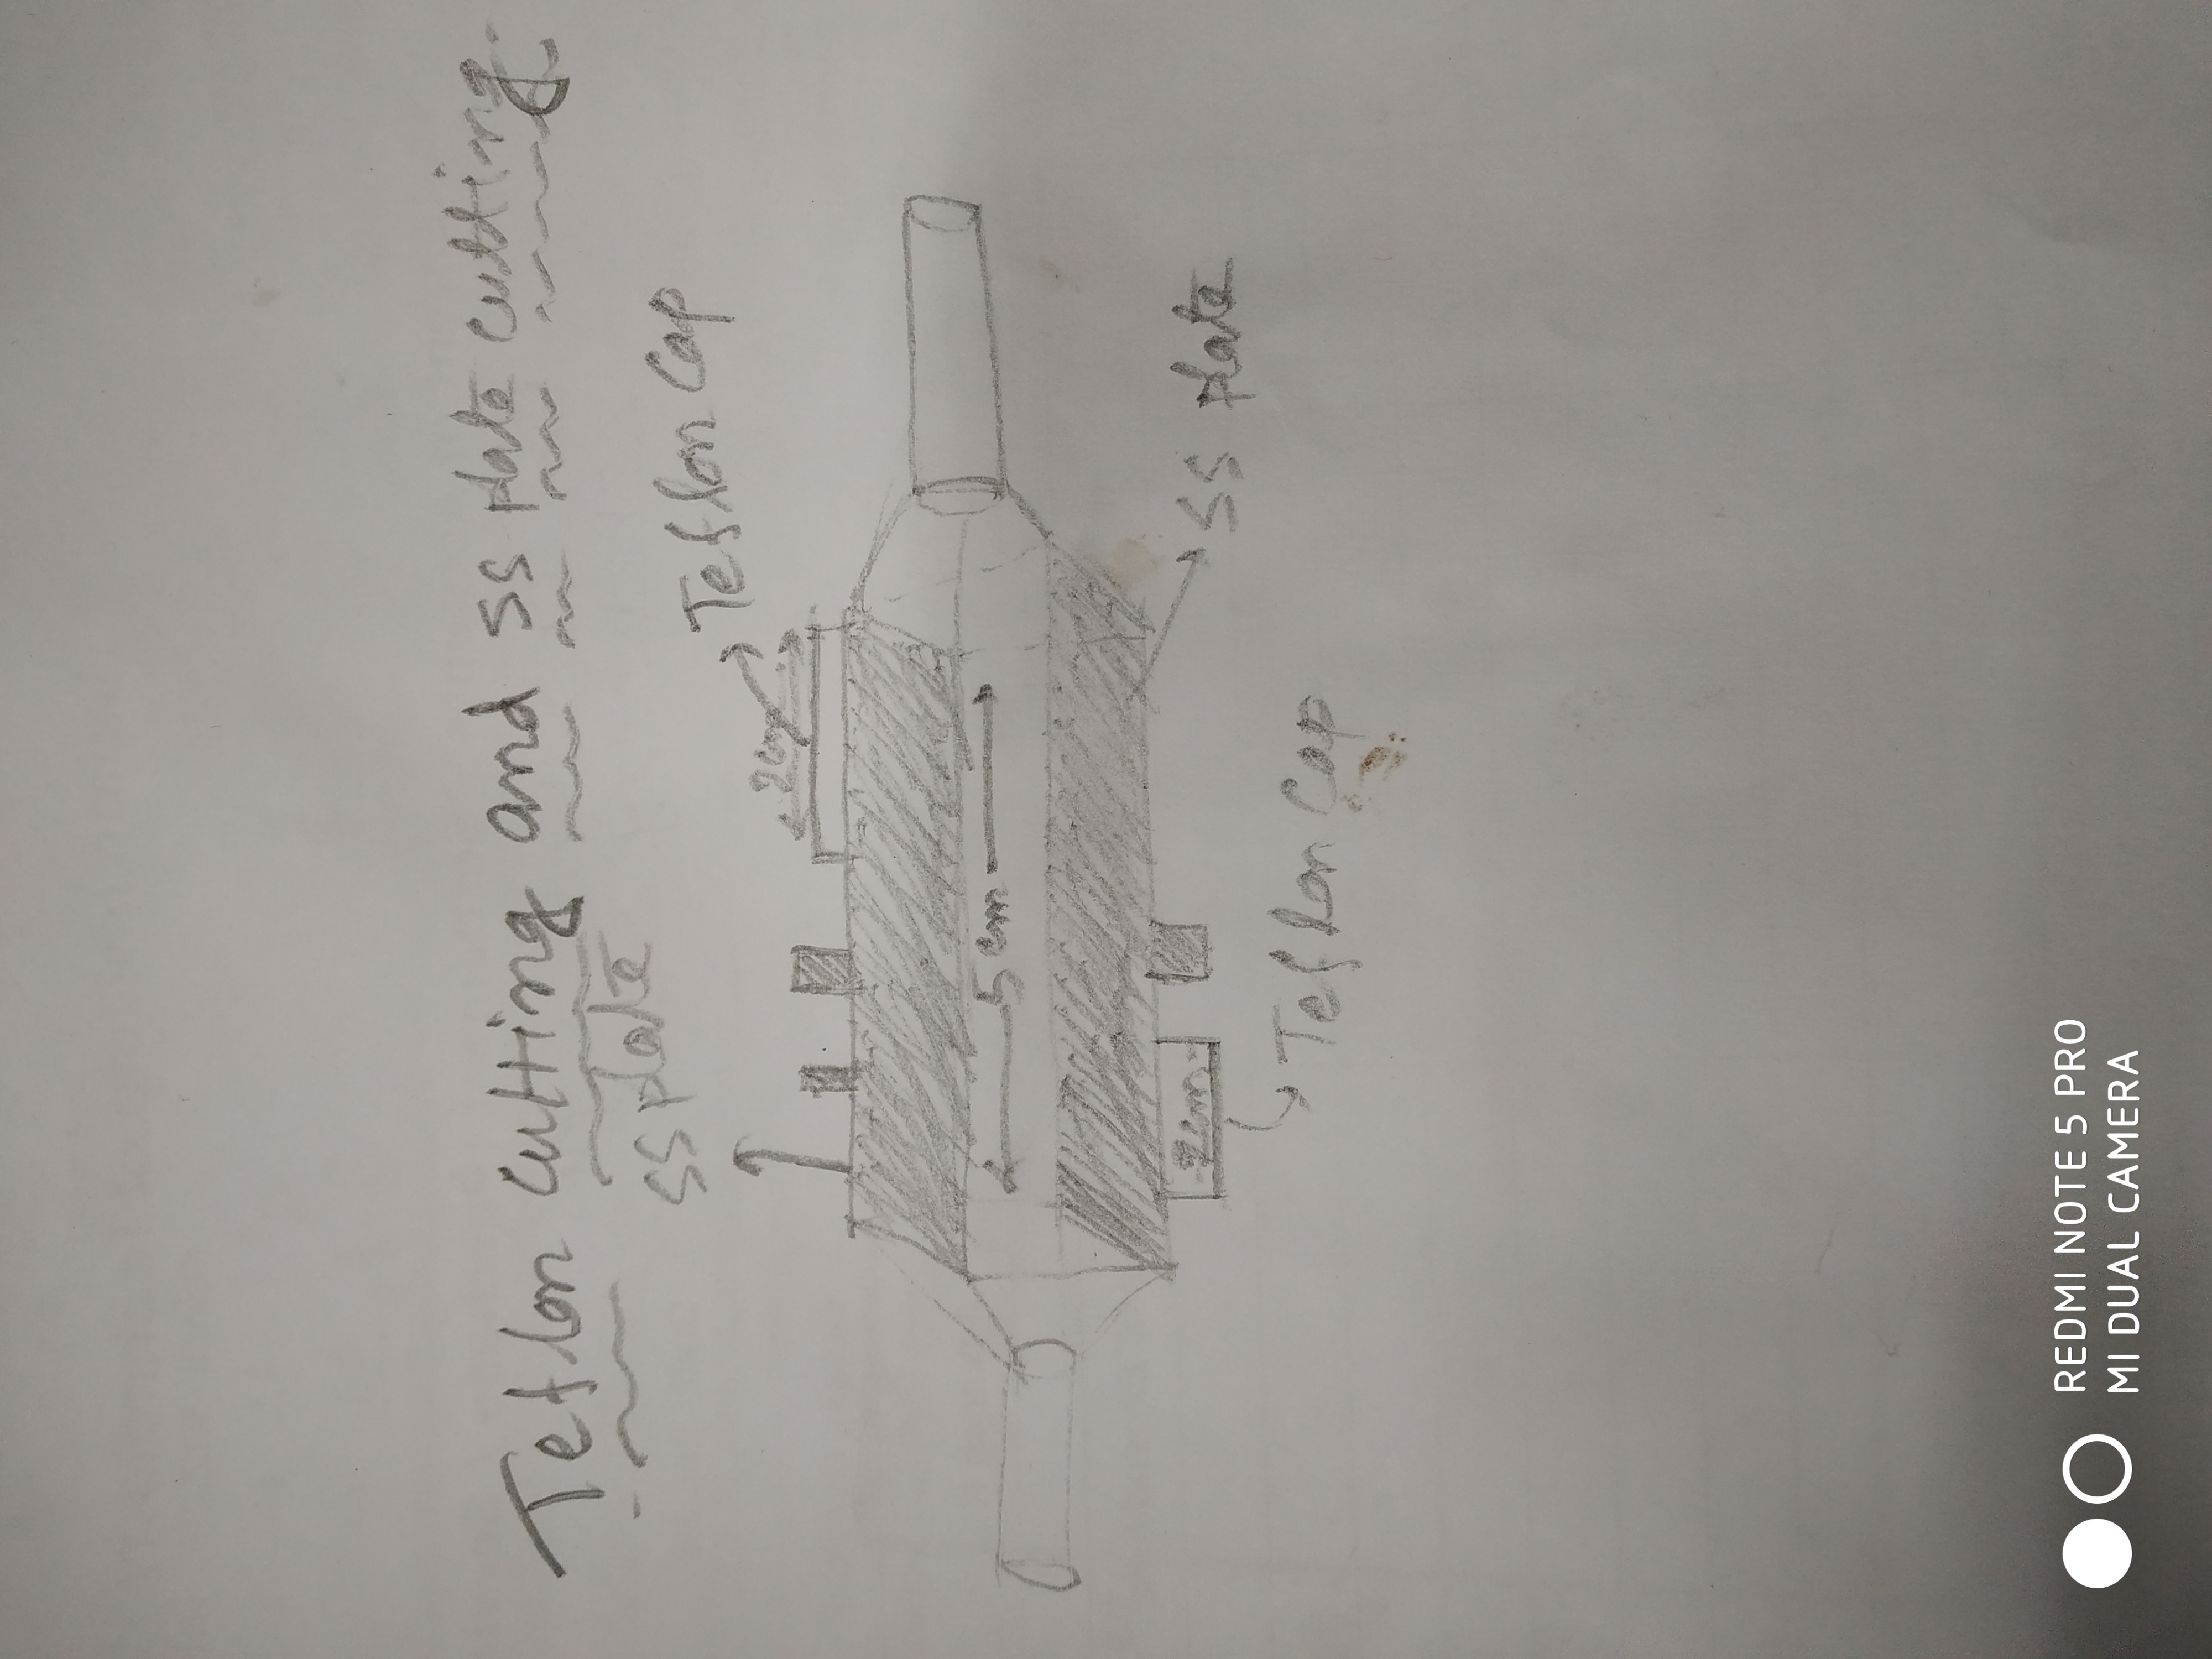 Teflon cutting and ss plate cutting.
ss plate
Teflon Cap
2cm
5 cm
2cm
SS plate
Teflon Cap
REDMI NOTE 5 PRO
MI DUAL CAMERA